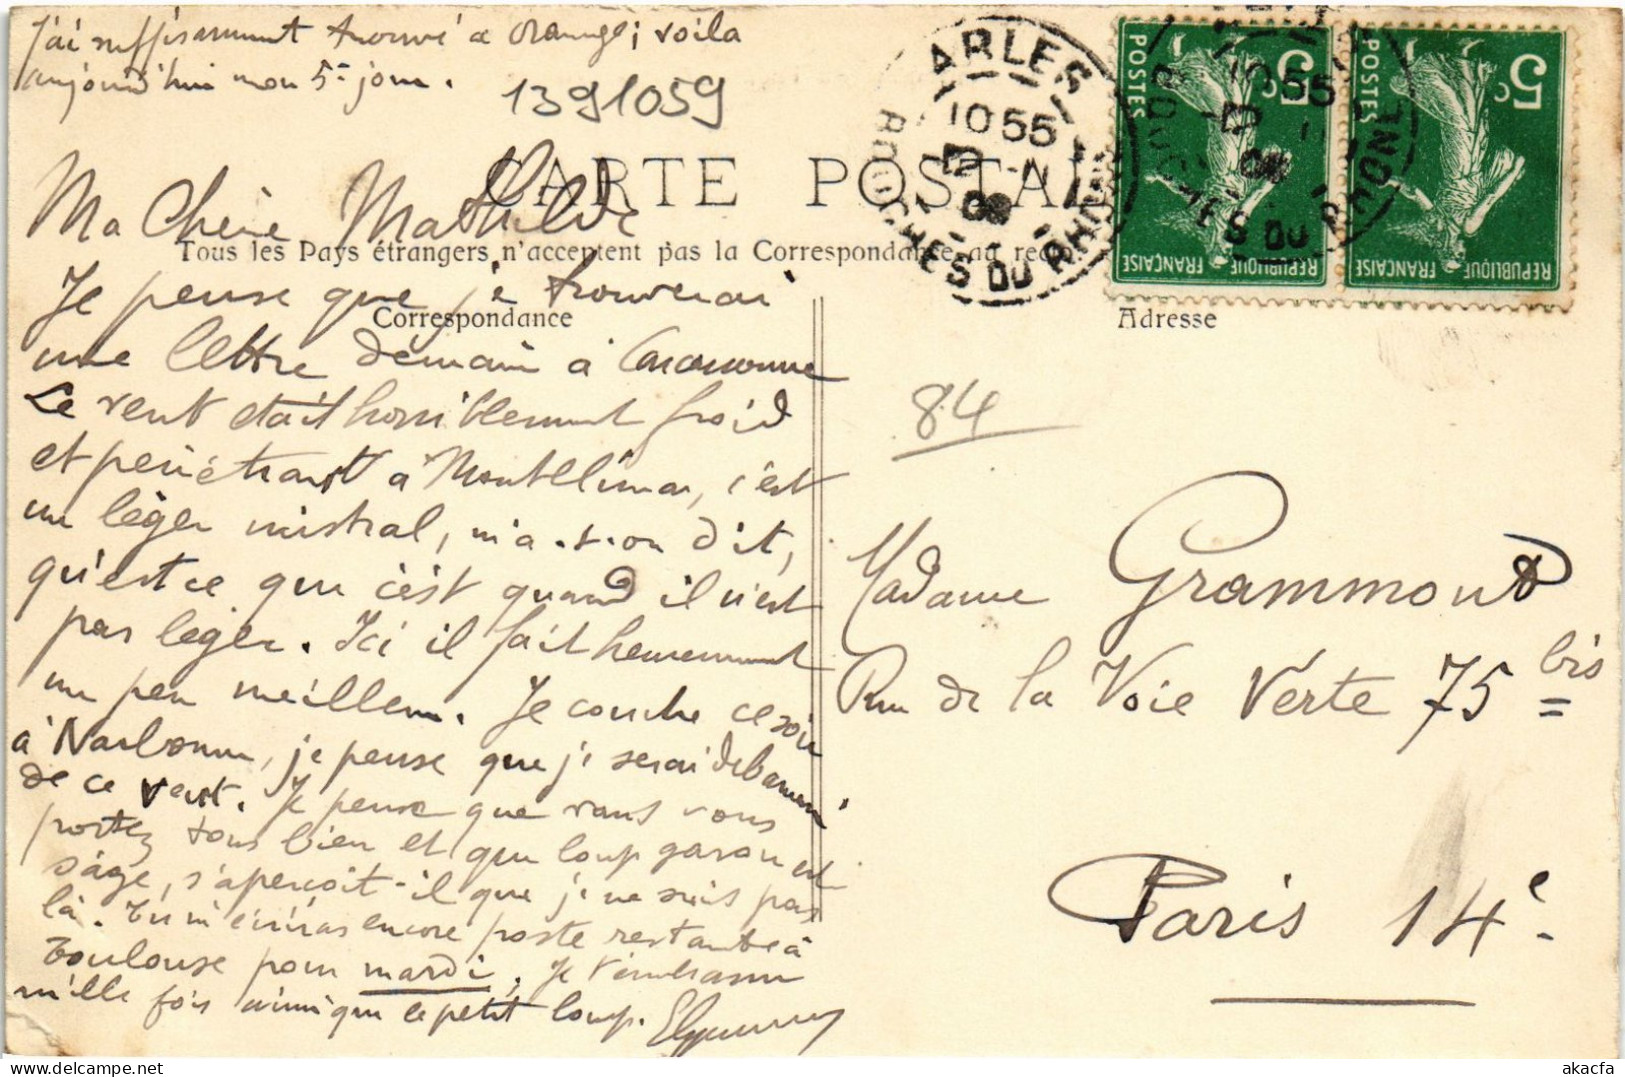 j'ai suffisamment trouvé à Orange; voila
aujourd'hui mon 5e jour.
1391059
CARTE POSTALE
Ma Chère Mathilde
Tous les Pays étrangers n'acceptent pas la Correspondance au recto
Je pense que je trouverai
Correspondance
une lettre demain à Carcassonne
Le vent etait horriblement froid
et pénétrant à Montélimar, c'est
un léger mistral, m'a-t-on dit,
qu'est ce que c'est quand il n'est
pas léger. Ici il fait heureusement
un peu meilleur. Je couche ce soir
à Narbonne, je pense que je serai débarrassé
de ce vent. Je pense que vous vous
portez tous bien et que loup garou est
sage, s'aperçoit-il que je ne suis pas
là. Tu m'écriras encore poste restante à
Toulouse pour mardi. Je t'embrasse
mille fois ainsi que le petit loup.
ARLES
10 55
17 - 11
08
BOUCHES DU RHONE
5c
POSTES
REPUBLIQUE FRANÇAISE
5c
POSTES
REPUBLIQUE FRANÇAISE
ARLES
10 55
17 - 11
08
BOUCHES DU RHONE
Adresse
84
Madame Grammont
Rue de la Voie Verte 75 bis
Paris 14e
akacfa